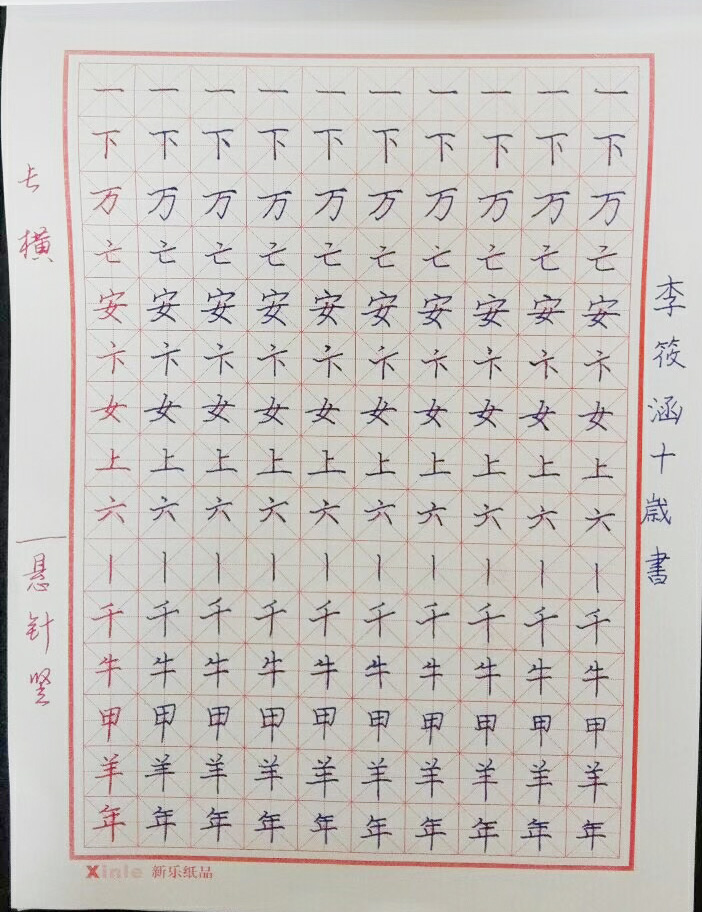 长横
一一一一一一一一一一
下下下下下下下下下下
万万万万万万万万万万
亡亡亡亡亡亡亡亡亡亡
安安安安安安安安安安
卞卞卞卞卞卞卞卞卞卞
女女女女女女女女女女
上上上上上上上上上上
六六六六六六六六六六
悬针竖
丨丨丨丨丨丨丨丨丨丨
千千千千千千千千千千
牛牛牛牛牛牛牛牛牛牛
甲甲甲甲甲甲甲甲甲甲
羊羊羊羊羊羊羊羊羊羊
年年年年年年年年年年
李筱涵十歲書
Xinle 新乐纸品